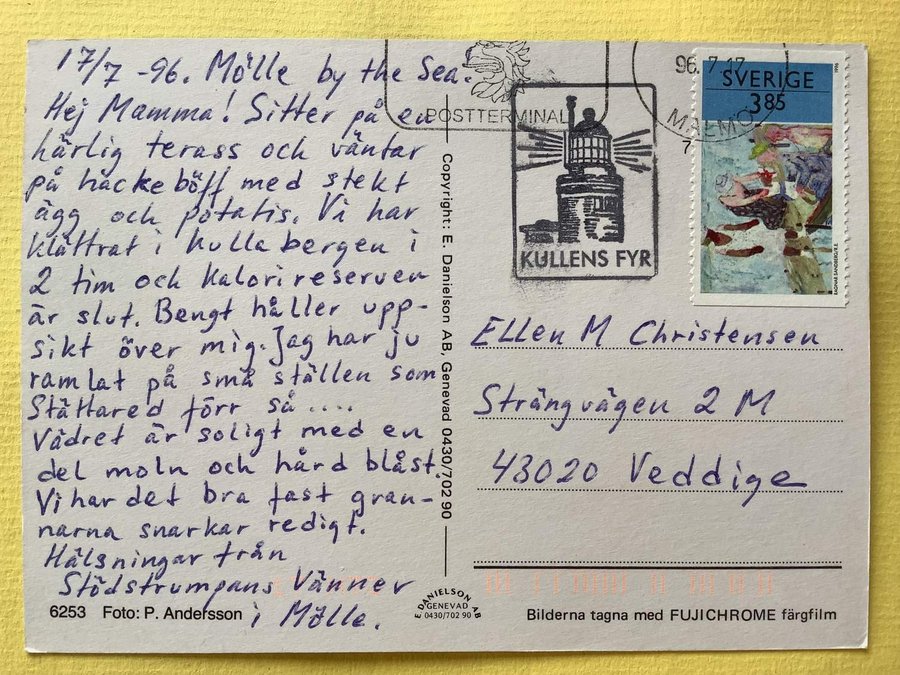 17/7 -96. Mölle by the Sea.
Hej Mamma! Sitter på en
härlig terass och väntar
på hackeböff med stekt
ägg och potatis. Vi har
klättrat i Kullabergen i
2 tim och Kalorireserven
är slut. Bengt håller upp-
sikt över mig. Jag har ju
ramlat på små ställen som
Stättared förr så ....
Vädret är soligt med en
del moln och hård blåst.
Vi har det bra fast gran-
narna snarkar redigt.
Hälsningar från
Stödstrumpans Vänner
i Mölle.
6253 Foto: P. Andersson
Copyright: E. Danielson AB, Genevad 0430/702 90
E. DANIELSON AB
GENEVAD
0430/702 90
POSTTERMINAL
KULLENS FYR
96.7.17
MALMÖ
7
SVERIGE
3.85
1996
RAGNAR SANDBERG
Ellen M Christensen
Strängvägen 2 M
43020 Veddige
Bilderna tagna med FUJICHROME färgfilm